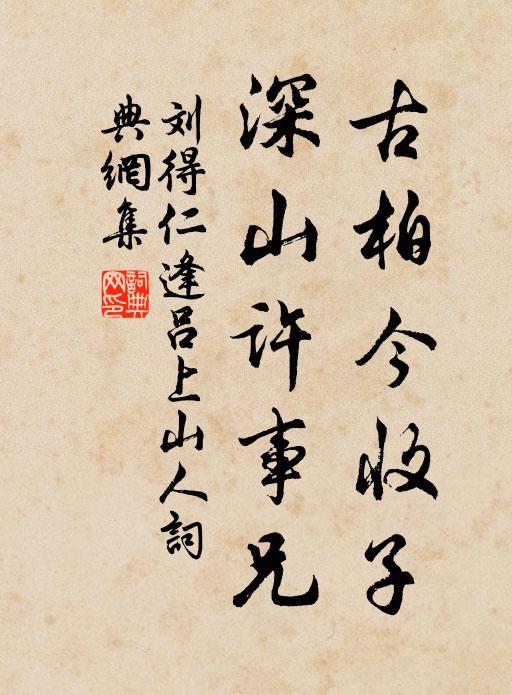 古柏今收子
深山許事兄
刘得仁逢吕上山人詞
典網集
詞典網印